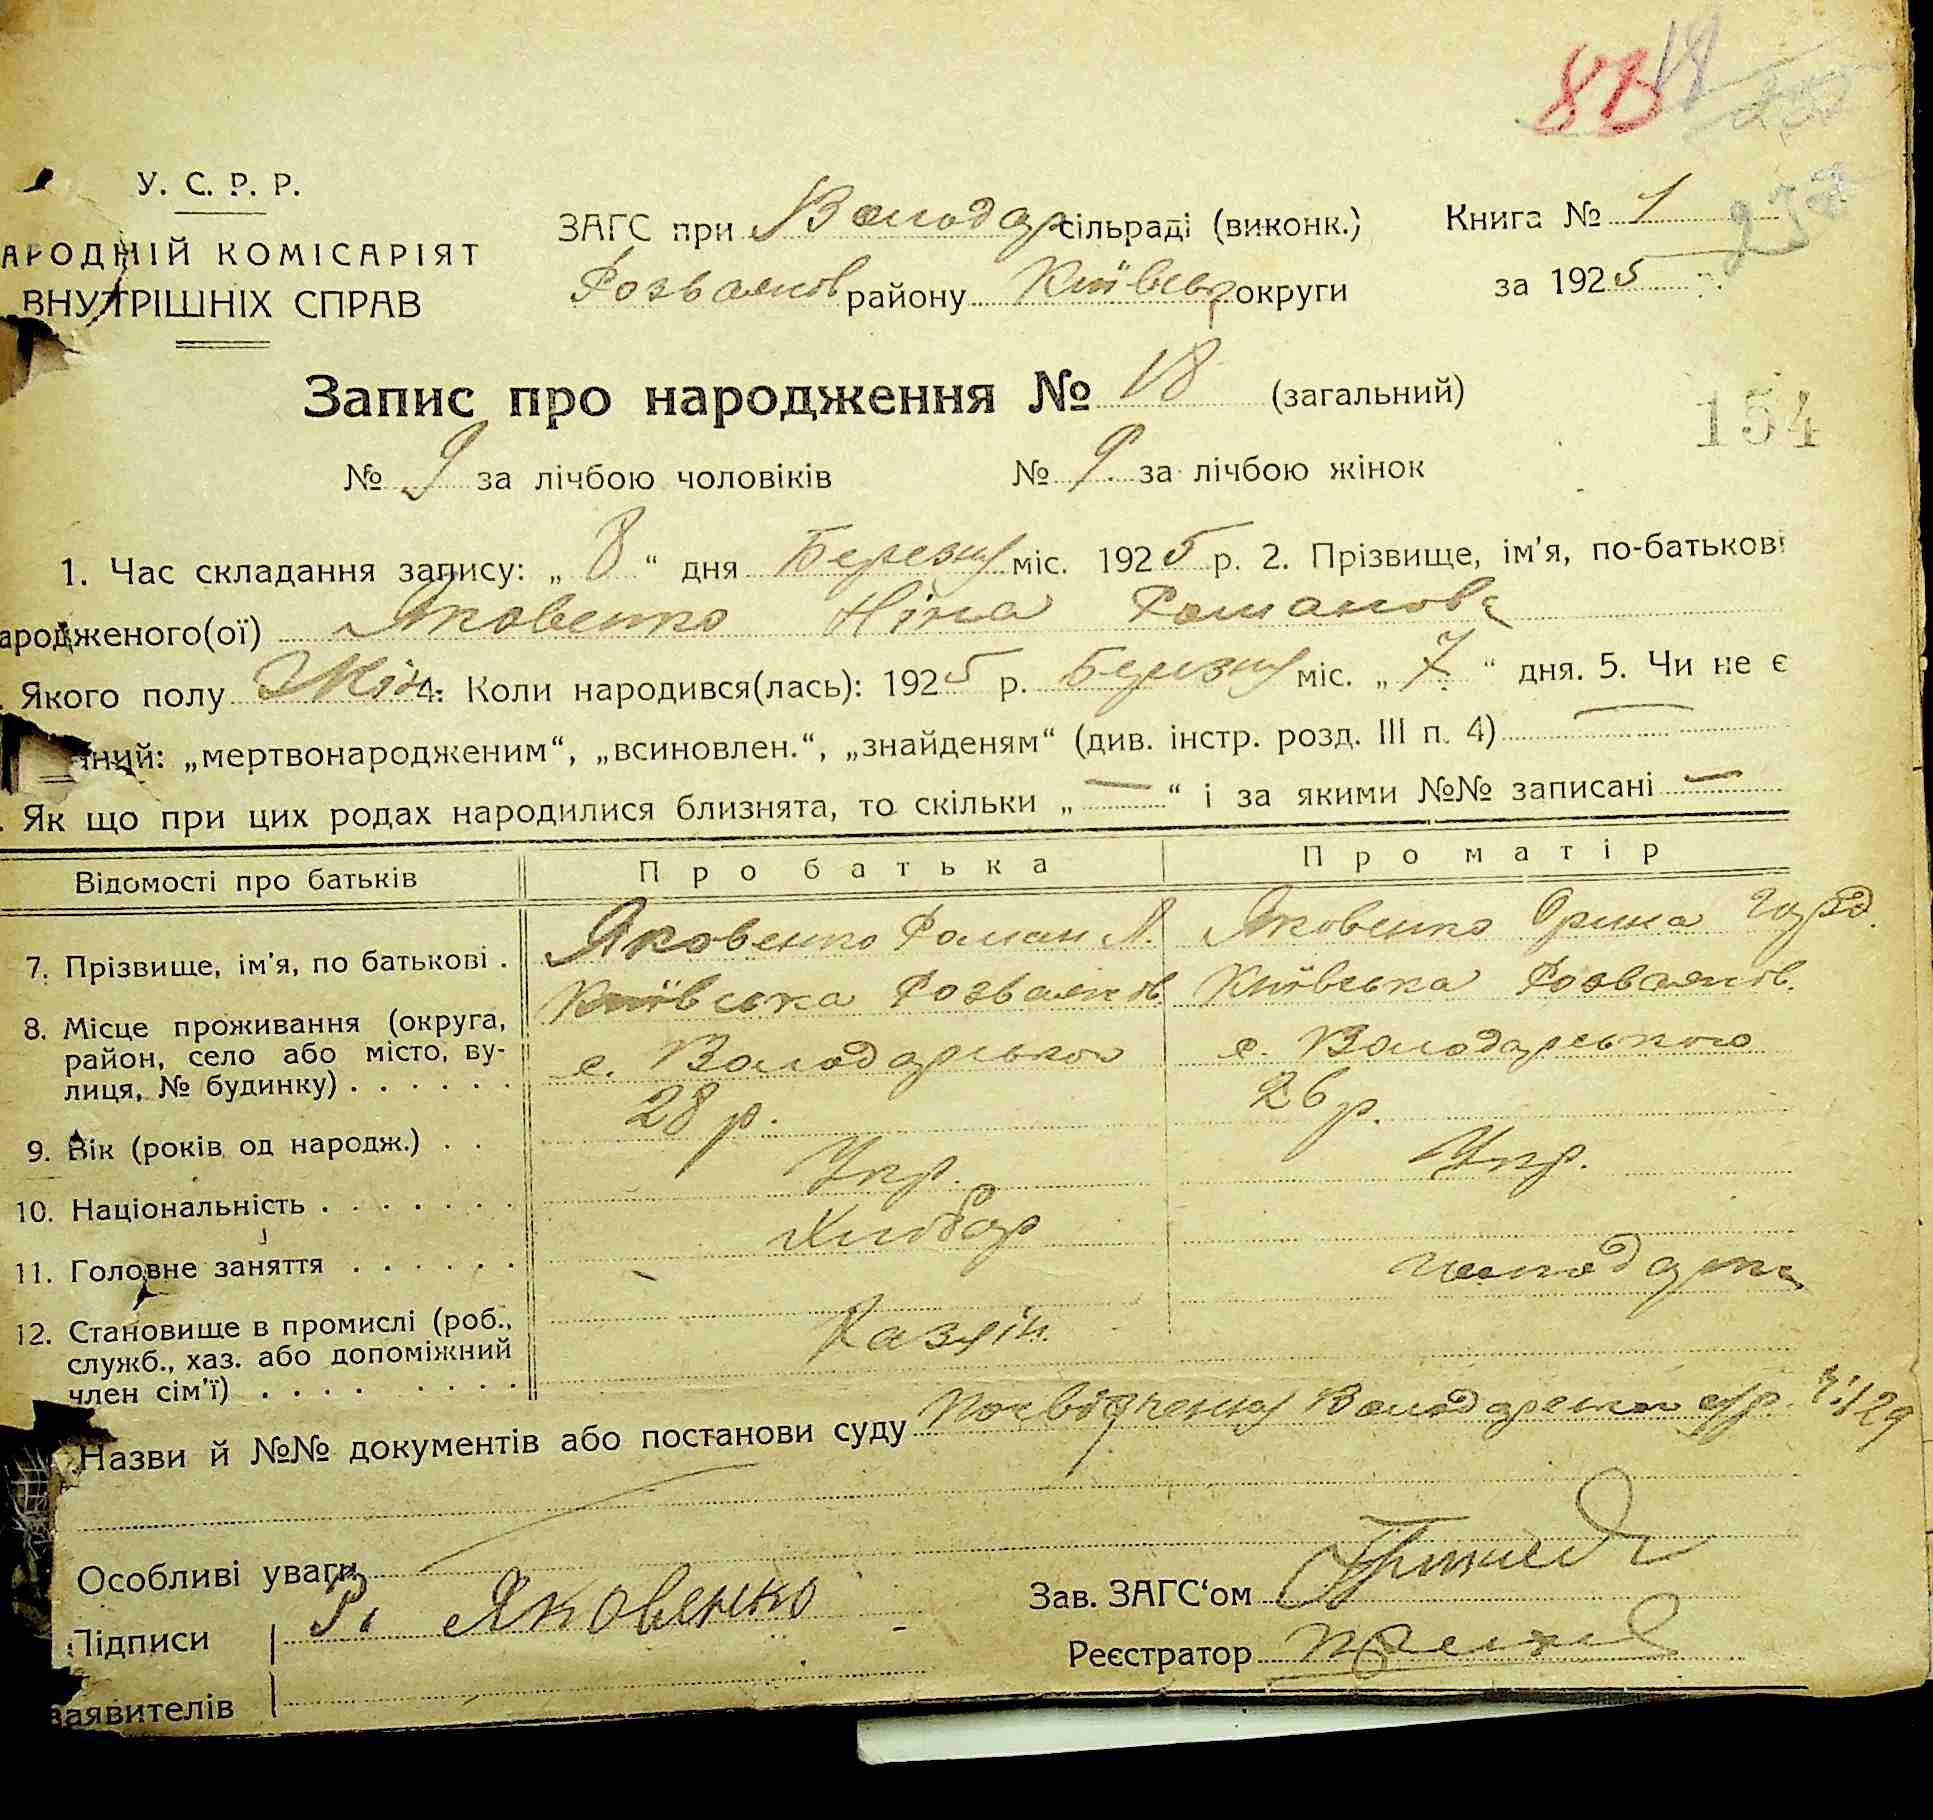 8В 18
У. С. Р. Р.
АРОДНІЙ КОМІСАРІЯТ
ВНУТРІШНІХ СПРАВ
ЗАГС при Володар сільраді (виконк.) Книга № 1
Розважів району Київськ округи за 1925 р.
237
Запис про народження № 18 (загальний)
154
№ 9 за лічбою чоловіків № 9 за лічбою жінок
1. Час складання запису: „ 8 “ дня Березня міс. 1925 р. 2. Прізвище, ім'я, по-батькові
ародженого(ої) Яковенко Ніна Романовa
Якого полу Жін. 4. Коли народився(лась): 1925 р. Березня міс. „ 7 “ дня. 5. Чи не є
ний: „мертвонародженим“, „всиновлен.“, „знайденям“ (див. інстр. розд. III п. 4) —
. Як що при цих родах народилися близнята, то скільки „ — “ і за якими №№ записані —
Відомості про батьків Про батька Про матір
7. Прізвище, ім'я, по батькові . Яковенко Роман Л. Яковенко Орина
8. Місце проживання (округа, Київська Розважів. Київська Розважів.
район, село або місто, ву-
лиця, № будинку) . . . . . . с. Володарського с. Володарського
9. Вік (років од народж.) . . 28 р. 26 р.
10. Національність . . . . . . . Укр. Укр.
11. Головне заняття . . . . . . Хлібор господарка
12. Становище в промислі (роб.,
служб., хаз. або допоміжний
член сім'ї) . . . . . . . . Хазяїн.
Назви й №№ документів або постанови суду Посвідчення Володарської с/р.
Особливі уваги
Підписи Р. Яковенко Зав. ЗАГС‘ом
Реєстратор
заявителів